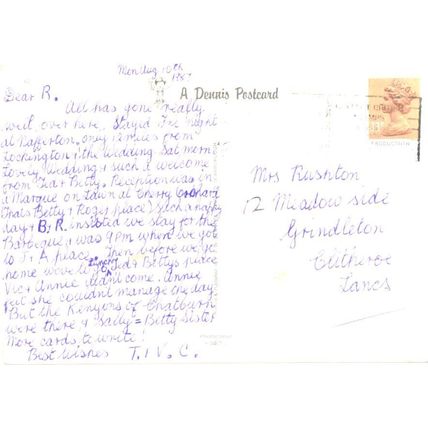 Mon Aug 10th
1987
A Dennis Postcard
Dear R.
All has gone really
well over here. Stayed the night
at only 12 miles from
Lockington & the wedding Sat morn
Lovely wedding & such a welcome
from & Betty. Reception was in
a Marque on lawn at Cherry Orchard
(thats Betty & Rogs place) such a happy
day & B.R. insisted we stay for the
Barbeque & was 9PM when we got
to place. Then before we
home were to & Bettys place
Vic & Annie want come. Annie
felt she couldn't manage the day
But the Kenyons of Chatburn
were there & Sally = Betty sister
More cards to write!
Best Wishes T. & V. C.
Mrs Rushton
12 Meadow side
Grindleton
Clitheroe
Lancs